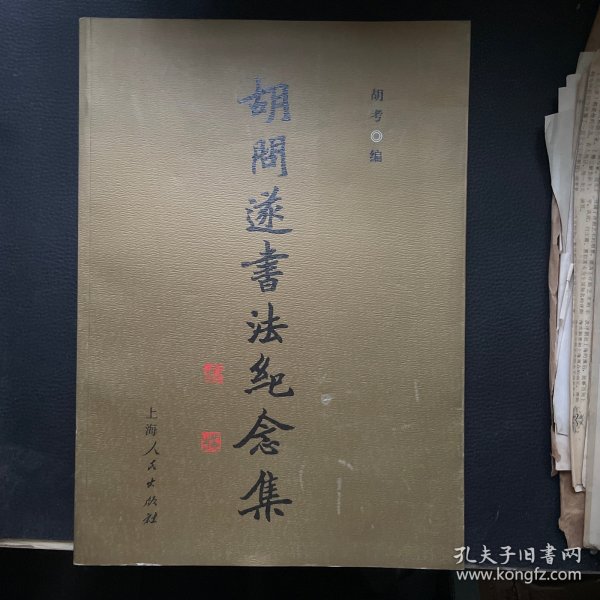 胡考◎编
胡問遂書法紀念集
上海人民出版社
孔夫子旧書网
www.kongfz.com